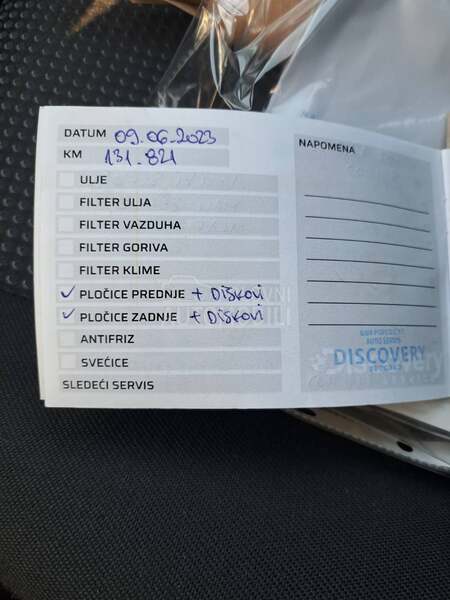 DATUM 09.06.2023
KM 131.821
ULJE
FILTER ULJA
FILTER VAZDUHA
FILTER GORIVA
FILTER KLIME
✓ PLOČICE PREDNJE + DISKOVI
✓ PLOČICE ZADNJE + DISKOVI
ANTIFRIZ
SVEĆICE
SLEDEĆI SERVIS
NAPOMENA
AUTO SERVIS
DISCOVERY